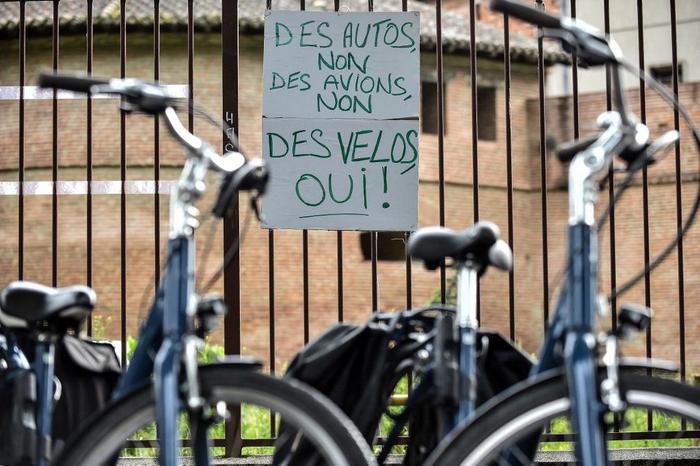 DES AUTOS,
NON
DES AVIONS,
NON
DES VELOS,
OUi!